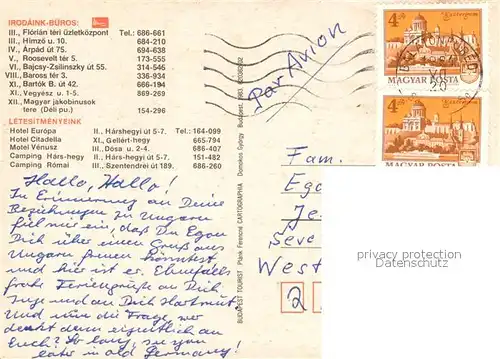 IRODÁINK-BÜROS:
III., Flórián téri üzletközpont Tel.: 686-661
III., Hímző u. 10. 684-210
IV., Árpád út 75. 694-638
V., Roosevelt tér 5. 173-555
VI., Bajcsy-Zsilinszky út 55. 314-546
VIII., Baross tér 3. 336-934
XI., Bartók B. út 42. 666-194
XI., Vegyész u. 1-5. 869-269
XII., Magyar jakobinusok
tere (Déli pu.) 154-296
LÉTESÍTMÉNYEINK
Hotel Európa II., Hárshegyi út 5-7. Tel.: 164-099
Hotel Citadella XI., Gellért-hegy 665-794
Motel Vénusz III., Dósa u. 2-4. 686-407
Camping Hárs-hegy II., Hárs-hegyi út 5-7. 151-482
Camping Római III., Szentendrei út 189. 686-260
Hallo, Hallo!
In Erinnerung an Deine
Beziehungen zu Ungarn
fiel mir ein, daß Du Egon
Dich über einen Gruß aus
Ungarn freuen könntest
und hier ist er. Ebenfalls
frohe Feriengrüße an Dich
Inge und an Dich Hartmut.
Und nun die Frage, wer
denkt denn eigentlich an
Euch? So long, see you
later in old Germany!
BUDAPEST TOURIST Plank Ferencné CARTOGRAPHIA Domokos György Budapest
Par Avion
4 Ft
Esztergom
MAGYAR POSTA
4
MAGYAR POSTA
Fam.
Ego
Je
Seve
West
2
privacy protection
akpool.com